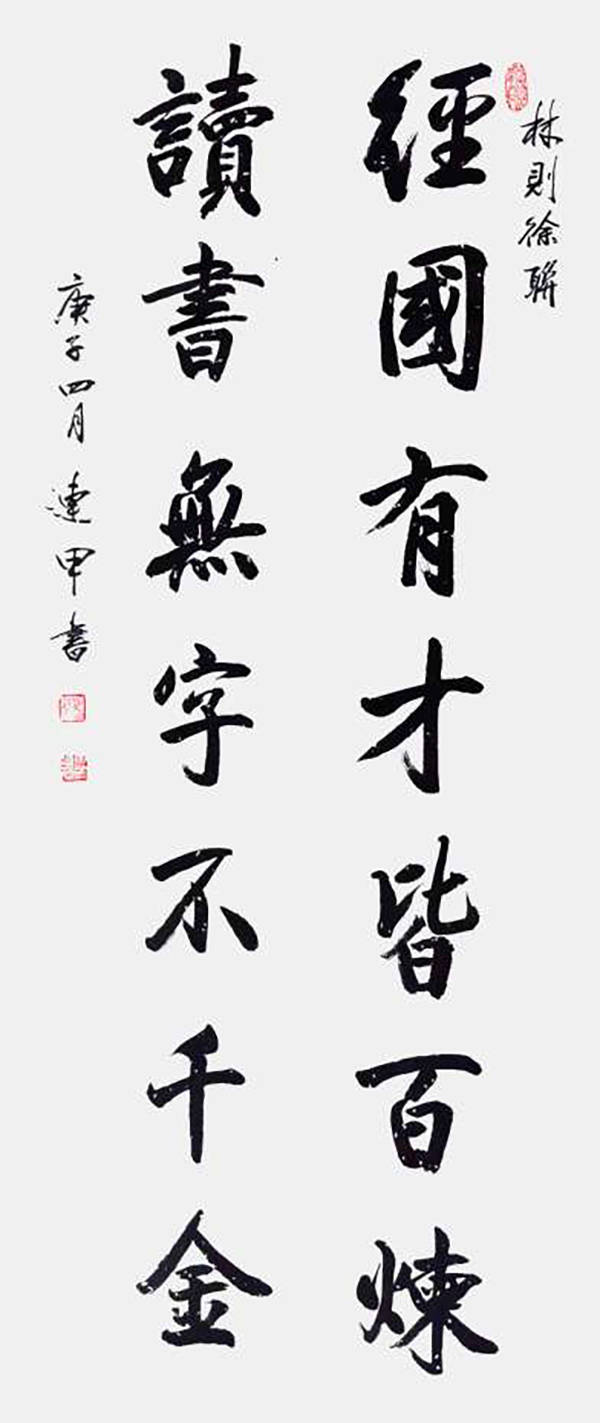 林則徐聯
經國有才皆百煉
讀書無字不千金
庚子四月連甲書